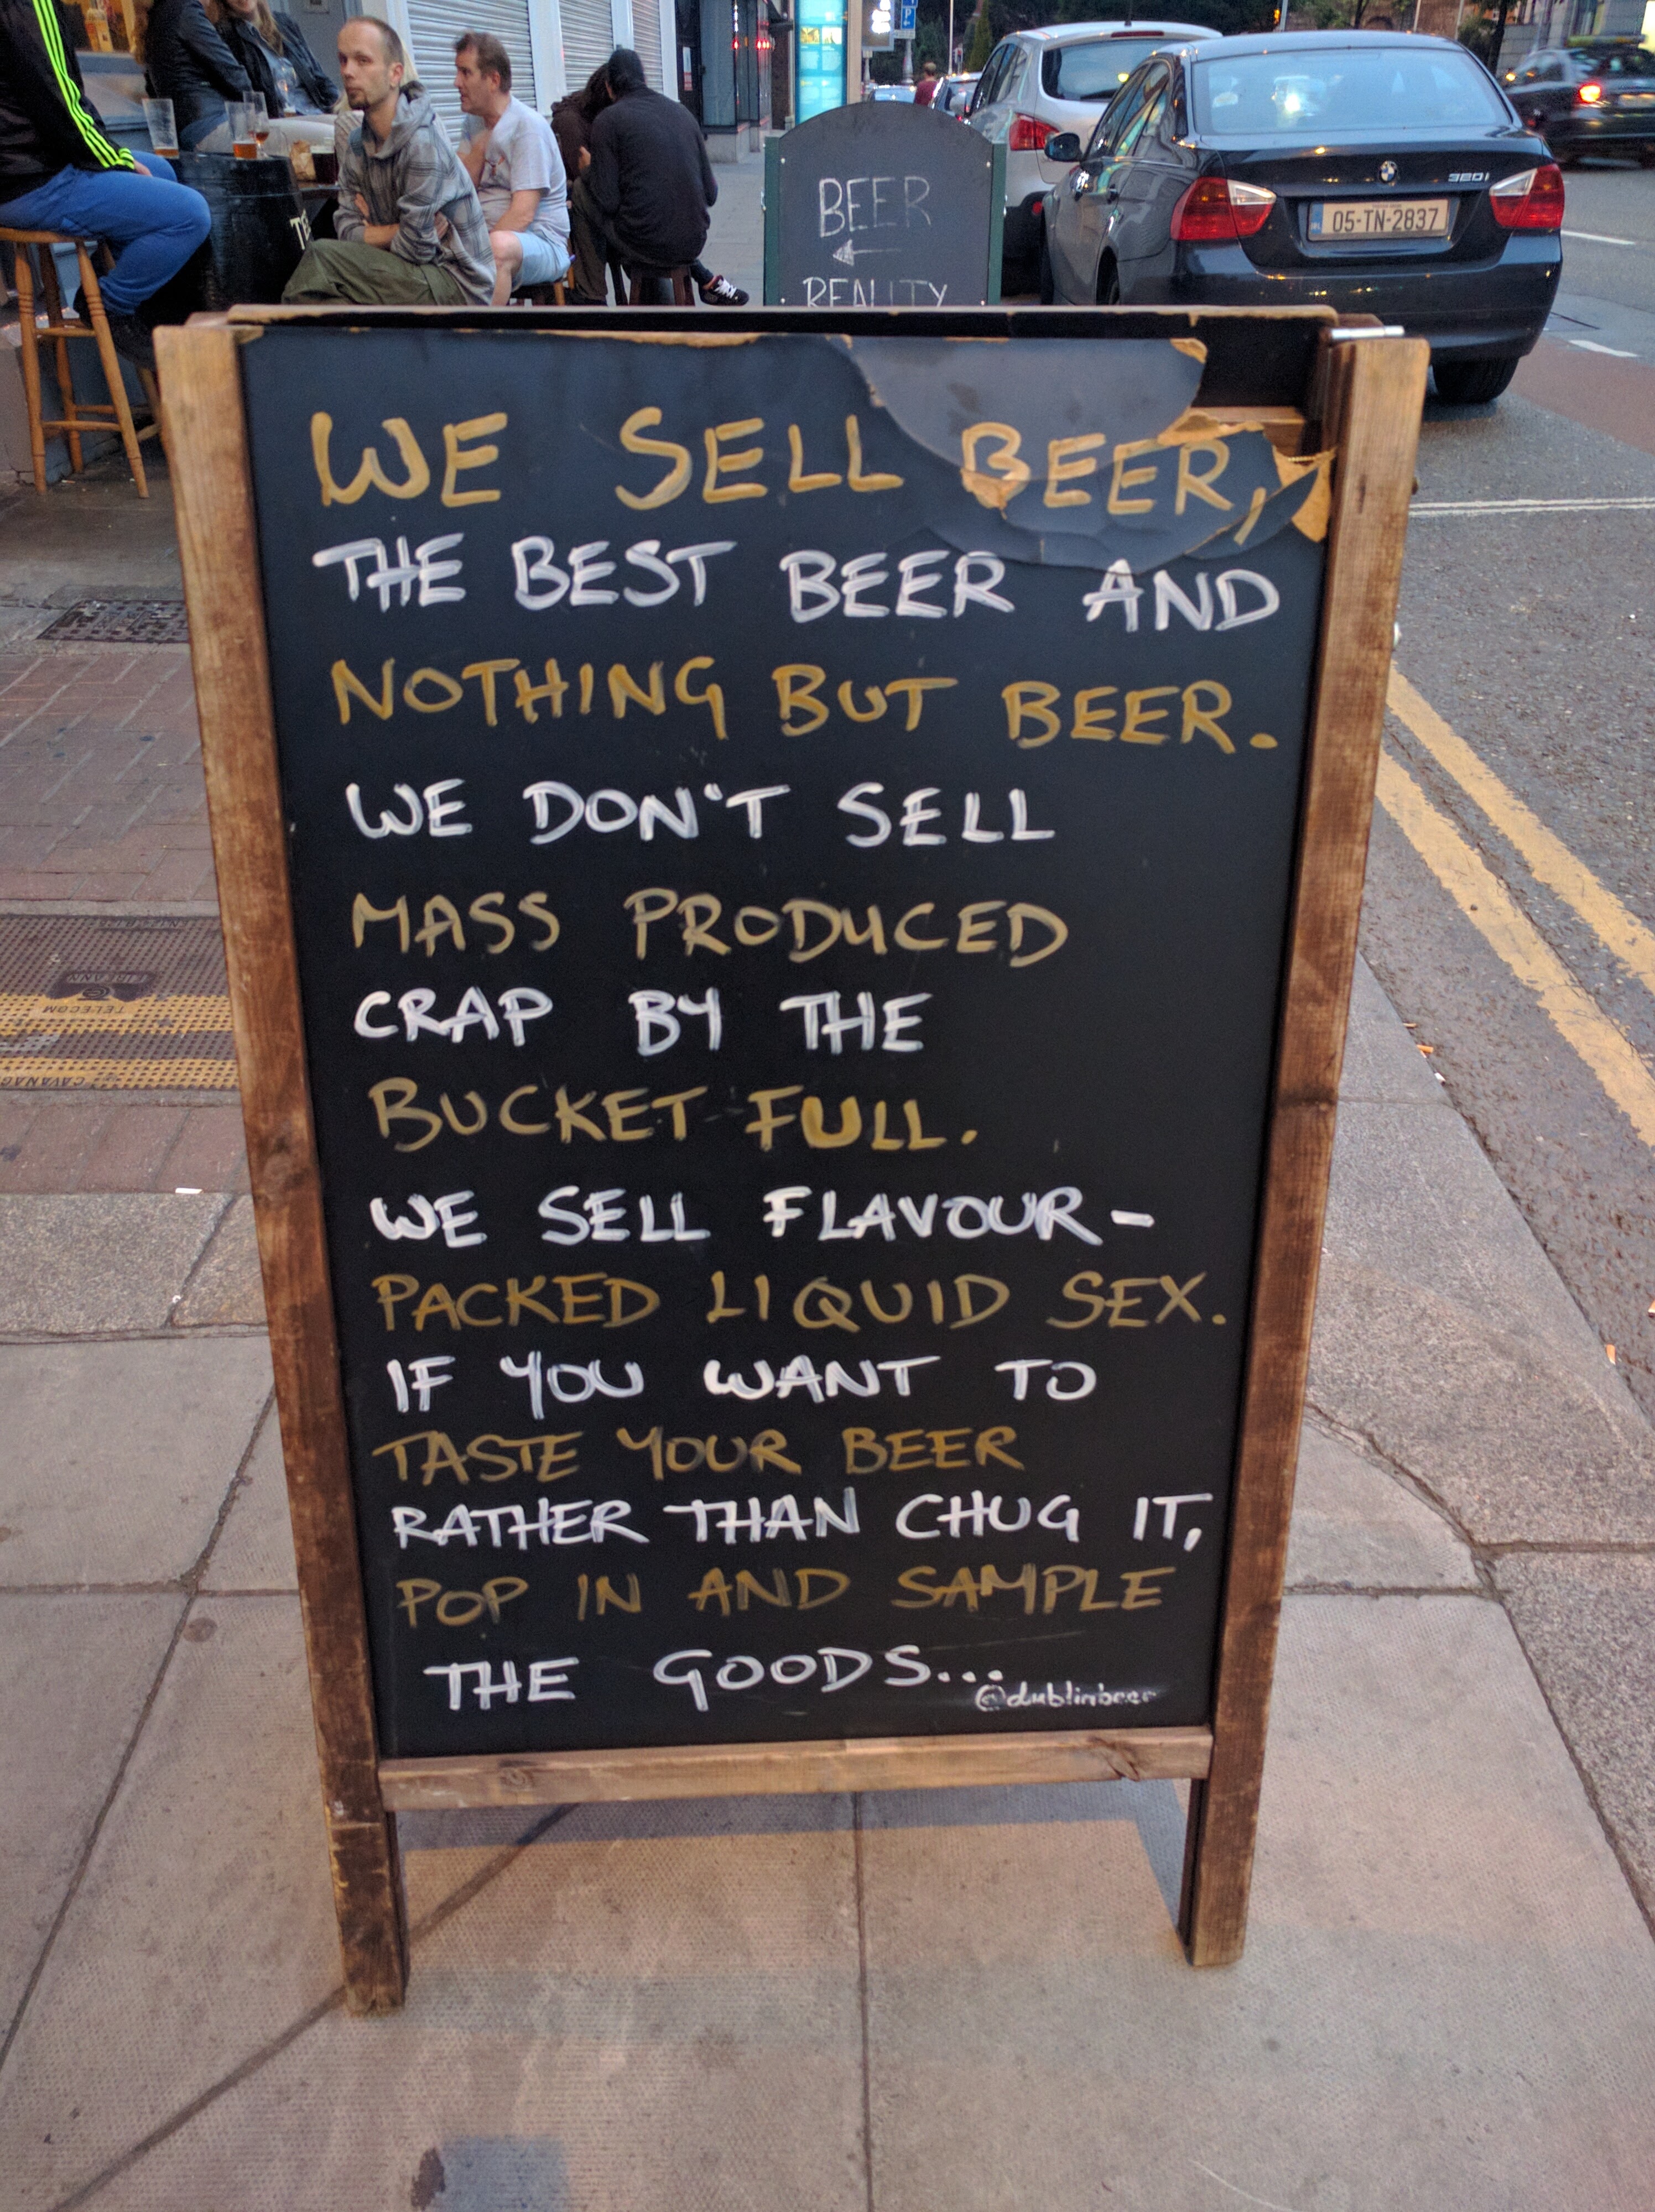 BEER
REALITY
320i
05-TN-2837
WE SELL BEER,
THE BEST BEER AND
NOTHING BUT BEER.
WE DON'T SELL
MASS PRODUCED
CRAP BY THE
BUCKET FULL.
WE SELL FLAVOUR-
PACKED LIQUID SEX.
IF YOU WANT TO
TASTE YOUR BEER
RATHER THAN CHUG IT,
POP IN AND SAMPLE
THE GOODS...
@dublinbeer
TELECOM